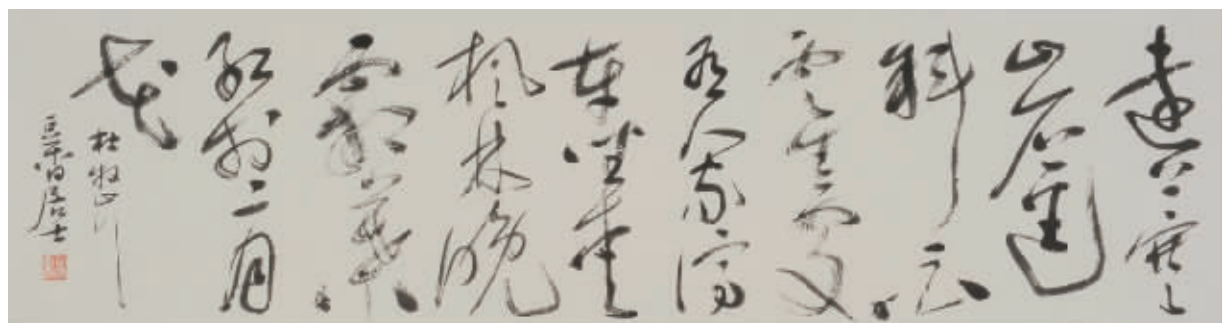 遠上寒
山石徑
斜白
雲生處
有人家停
車坐愛
楓林晚
霜葉
紅於二月
花
杜牧山行
居士